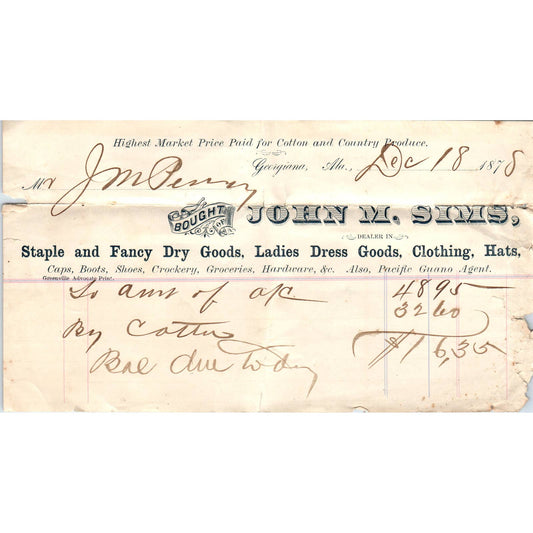 Highest Market Price Paid for Cotton and Country Produce.
Georgiana, Ala., Dec 18 1878
Mr J. M Penny
BOUGHT OF JOHN M. SIMS,
DEALER IN
Staple and Fancy Dry Goods, Ladies Dress Goods, Clothing, Hats,
Caps, Boots, Shoes, Crockery, Groceries, Hardware, &c. Also, Pacific Guano Agent.
Greenville Advocate Print.
To Amt of a/c 48 95
By Cotton 32 60
Bal due to day $16,35